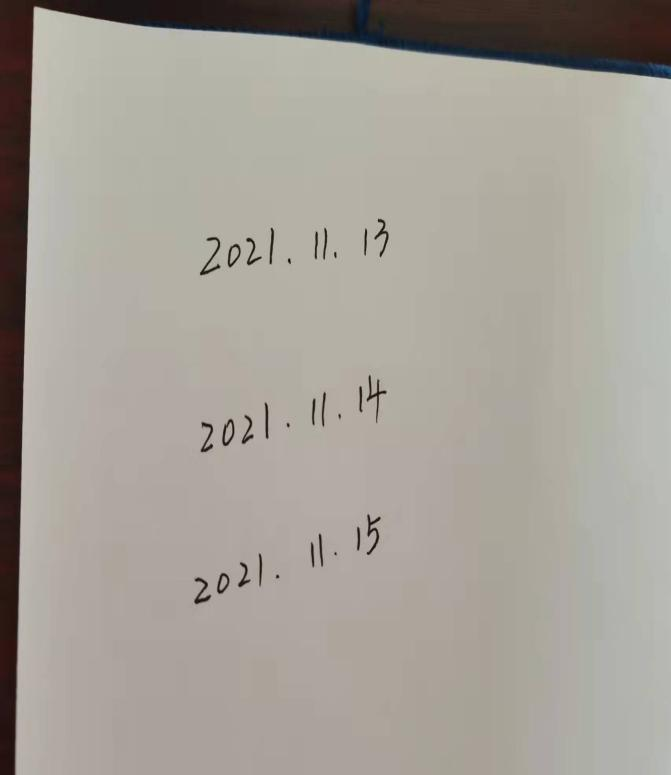 2021. 11. 13
2021. 11. 14
2021. 11. 15